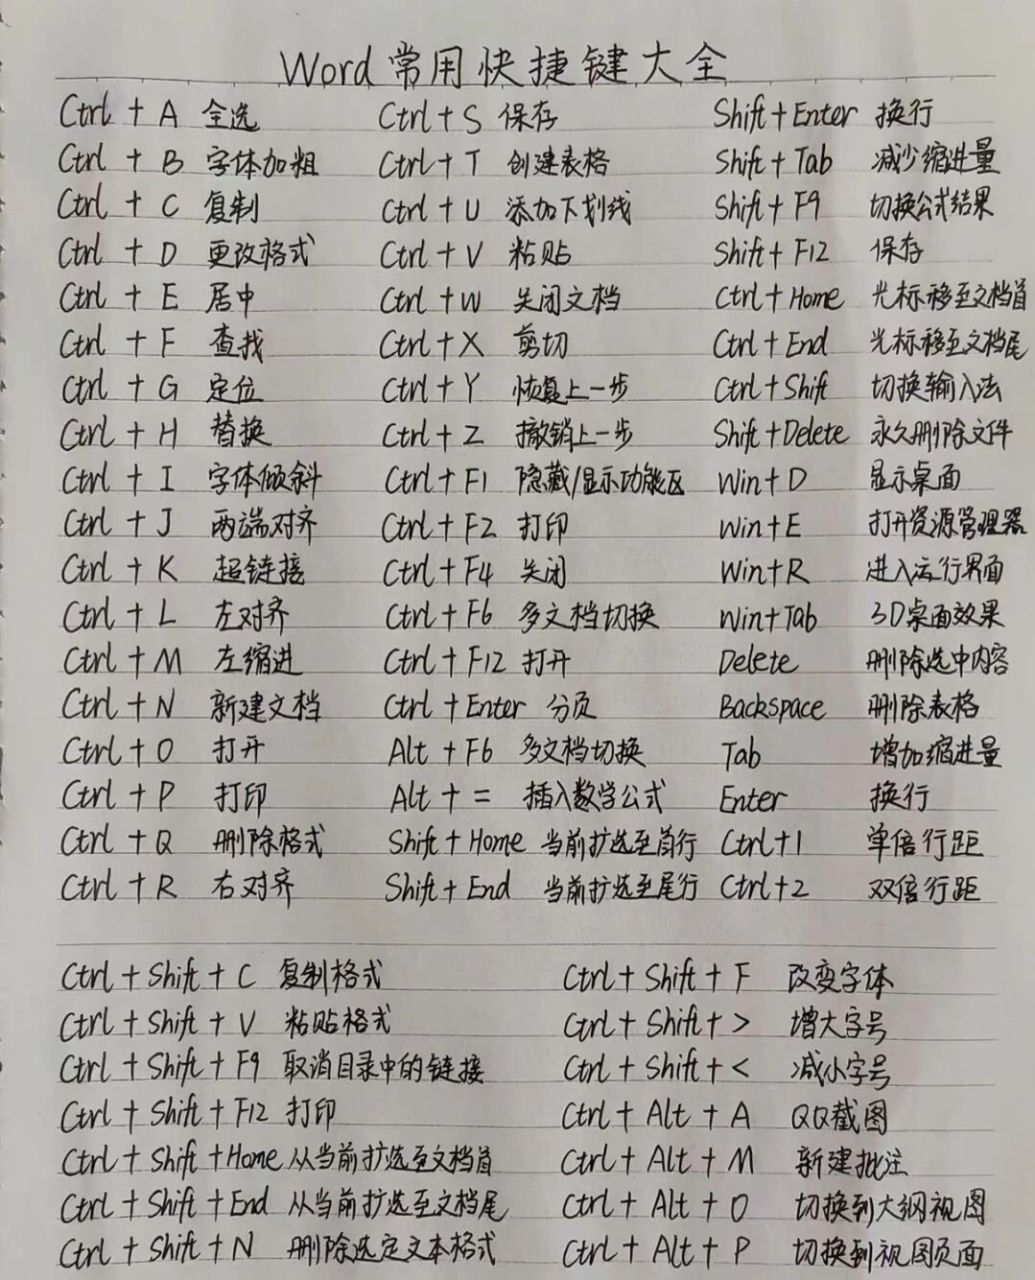 Word常用快捷键大全
Ctrl + A 全选 Ctrl + S 保存 Shift + Enter 换行
Ctrl + B 字体加粗 Ctrl + T 创建表格 Shift + Tab 减少缩进量
Ctrl + C 复制 Ctrl + U 添加下划线 Shift + F9 切换公式结果
Ctrl + D 更改格式 Ctrl + V 粘贴 Shift + F12 保存
Ctrl + E 居中 Ctrl + W 关闭文档 Ctrl + Home 光标移至文档首
Ctrl + F 查找 Ctrl + X 剪切 Ctrl + End 光标移至文档尾
Ctrl + G 定位 Ctrl + Y 恢复上一步 Ctrl + Shift 切换输入法
Ctrl + H 替换 Ctrl + Z 撤销上一步 Shift + Delete 永久删除文件
Ctrl + I 字体倾斜 Ctrl + F1 隐藏/显示功能区 Win + D 显示桌面
Ctrl + J 两端对齐 Ctrl + F2 打印 Win + E 打开资源管理器
Ctrl + K 超链接 Ctrl + F4 关闭 Win + R 进入运行界面
Ctrl + L 左对齐 Ctrl + F6 多文档切换 Win + Tab 3D桌面效果
Ctrl + M 左缩进 Ctrl + F12 打开 Delete 删除选中内容
Ctrl + N 新建文档 Ctrl + Enter 分页 Backspace 删除表格
Ctrl + O 打开 Alt + F6 多文档切换 Tab 增加缩进量
Ctrl + P 打印 Alt + = 插入数学公式 Enter 换行
Ctrl + Q 删除格式 Shift + Home 当前扩选至首行 Ctrl + 1 单倍行距
Ctrl + R 右对齐 Shift + End 当前扩选至尾行 Ctrl + 2 双倍行距
Ctrl + Shift + C 复制格式 Ctrl + Shift + F 改变字体
Ctrl + Shift + V 粘贴格式 Ctrl + Shift + > 增大字号
Ctrl + Shift + F9 取消目录中的链接 Ctrl + Shift + < 减小字号
Ctrl + Shift + F12 打印 Ctrl + Alt + A QQ截图
Ctrl + Shift + Home 从当前扩选至文档首 Ctrl + Alt + M 新建批注
Ctrl + Shift + End 从当前扩选至文档尾 Ctrl + Alt + O 切换到大纲视图
Ctrl + Shift + N 删除选定文本格式 Ctrl + Alt + P 切换到视图页面